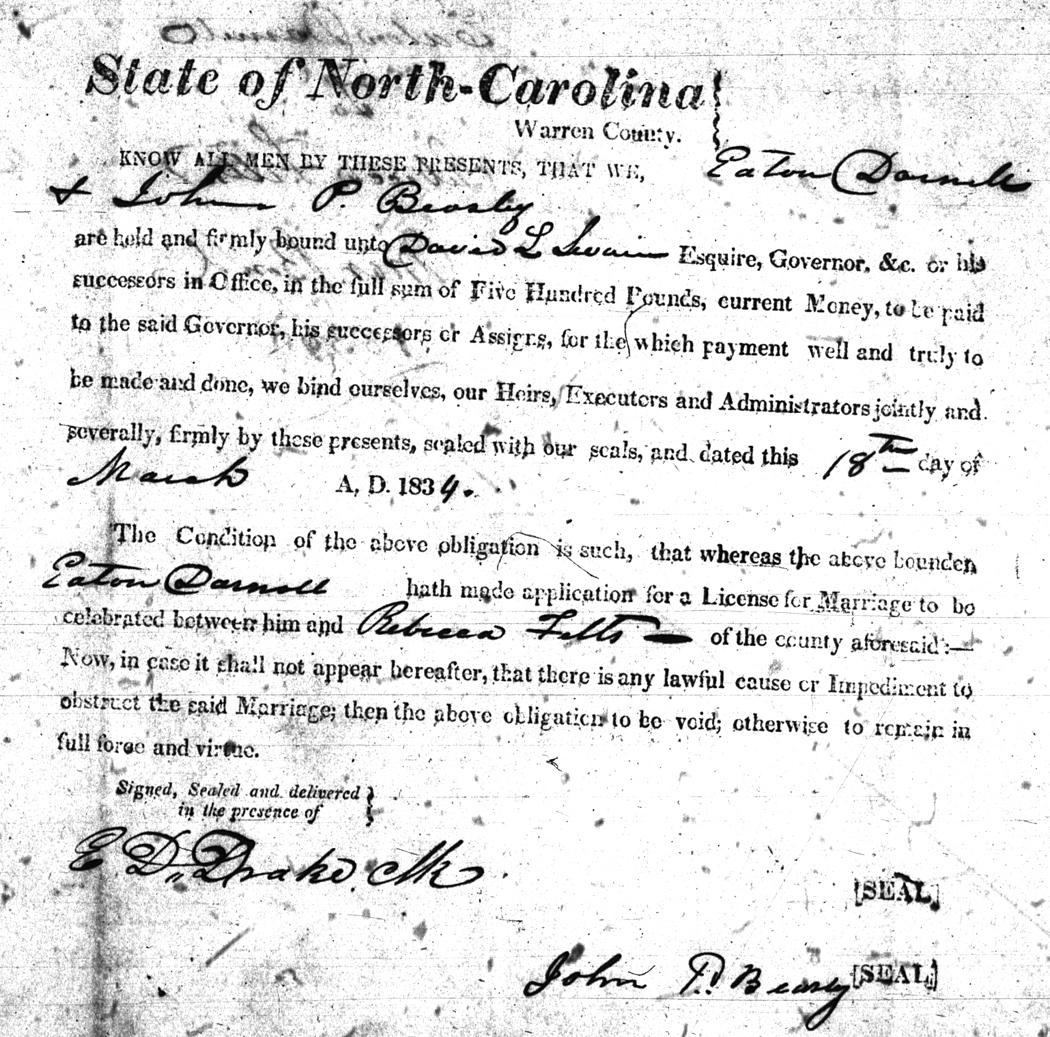 State of North-Carolina
Warren County.
KNOW ALL MEN BY THESE PRESENTS, THAT WE, Eaton Darnell
& John P. Beasly
are held and firmly bound unto David L Swain Esquire, Governor, &c. or his
successors in Office, in the full sum of Five Hundred Pounds, current Money, to be paid
to the said Governor, his successors or Assigns, for the which payment well and truly to
be made and done, we bind ourselves, our Heirs, Executors and Administrators jointly and
severally, firmly by these presents, sealed with our seals, and dated this 18th day of
March A, D. 1834.
The Condition of the above obligation is such, that whereas the above bounden
Eaton Darnell hath made application for a License for Marriage to be
celebrated between him and Rebecca Felts of the county aforesaid:—
Now, in case it shall not appear hereafter, that there is any lawful cause or Impediment to
obstruct the said Marriage; then the above obligation to be void; otherwise to remain in
full force and virtue.
Signed, Sealed and delivered
in the presence of
E. D. Drake. Clk
[SEAL]
John P. Beasly [SEAL]